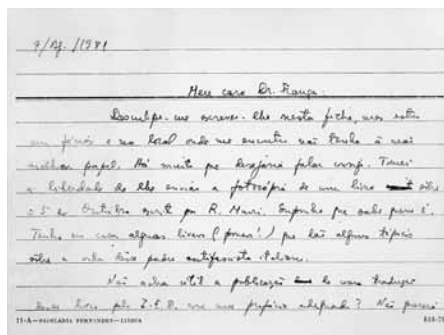 9/Ag./1981
Meu caro Dr. França:
Desculpe-me escrever-lhe nesta ficha, mas estou
em férias e no local onde me encontro não tenho à mão
melhor papel. Há muito que desejava falar consigo. Tomei
a liberdade de lhe enviar a fotocópia de um livro sobre
o 5 de Outubro escrito por R. Murri. Suponho que sabe quem é.
Tenho em casa alguns livros (poucos!) que dão alguns tópicos
sôbre a vida dêsse padre antifascista italiano.
Não acha útil a publicação de uma tradução
dêsse livro pelo I.E.D. com um prefácio adequado? Não
11-A—PAPELARIA FERNANDES—LISBOA